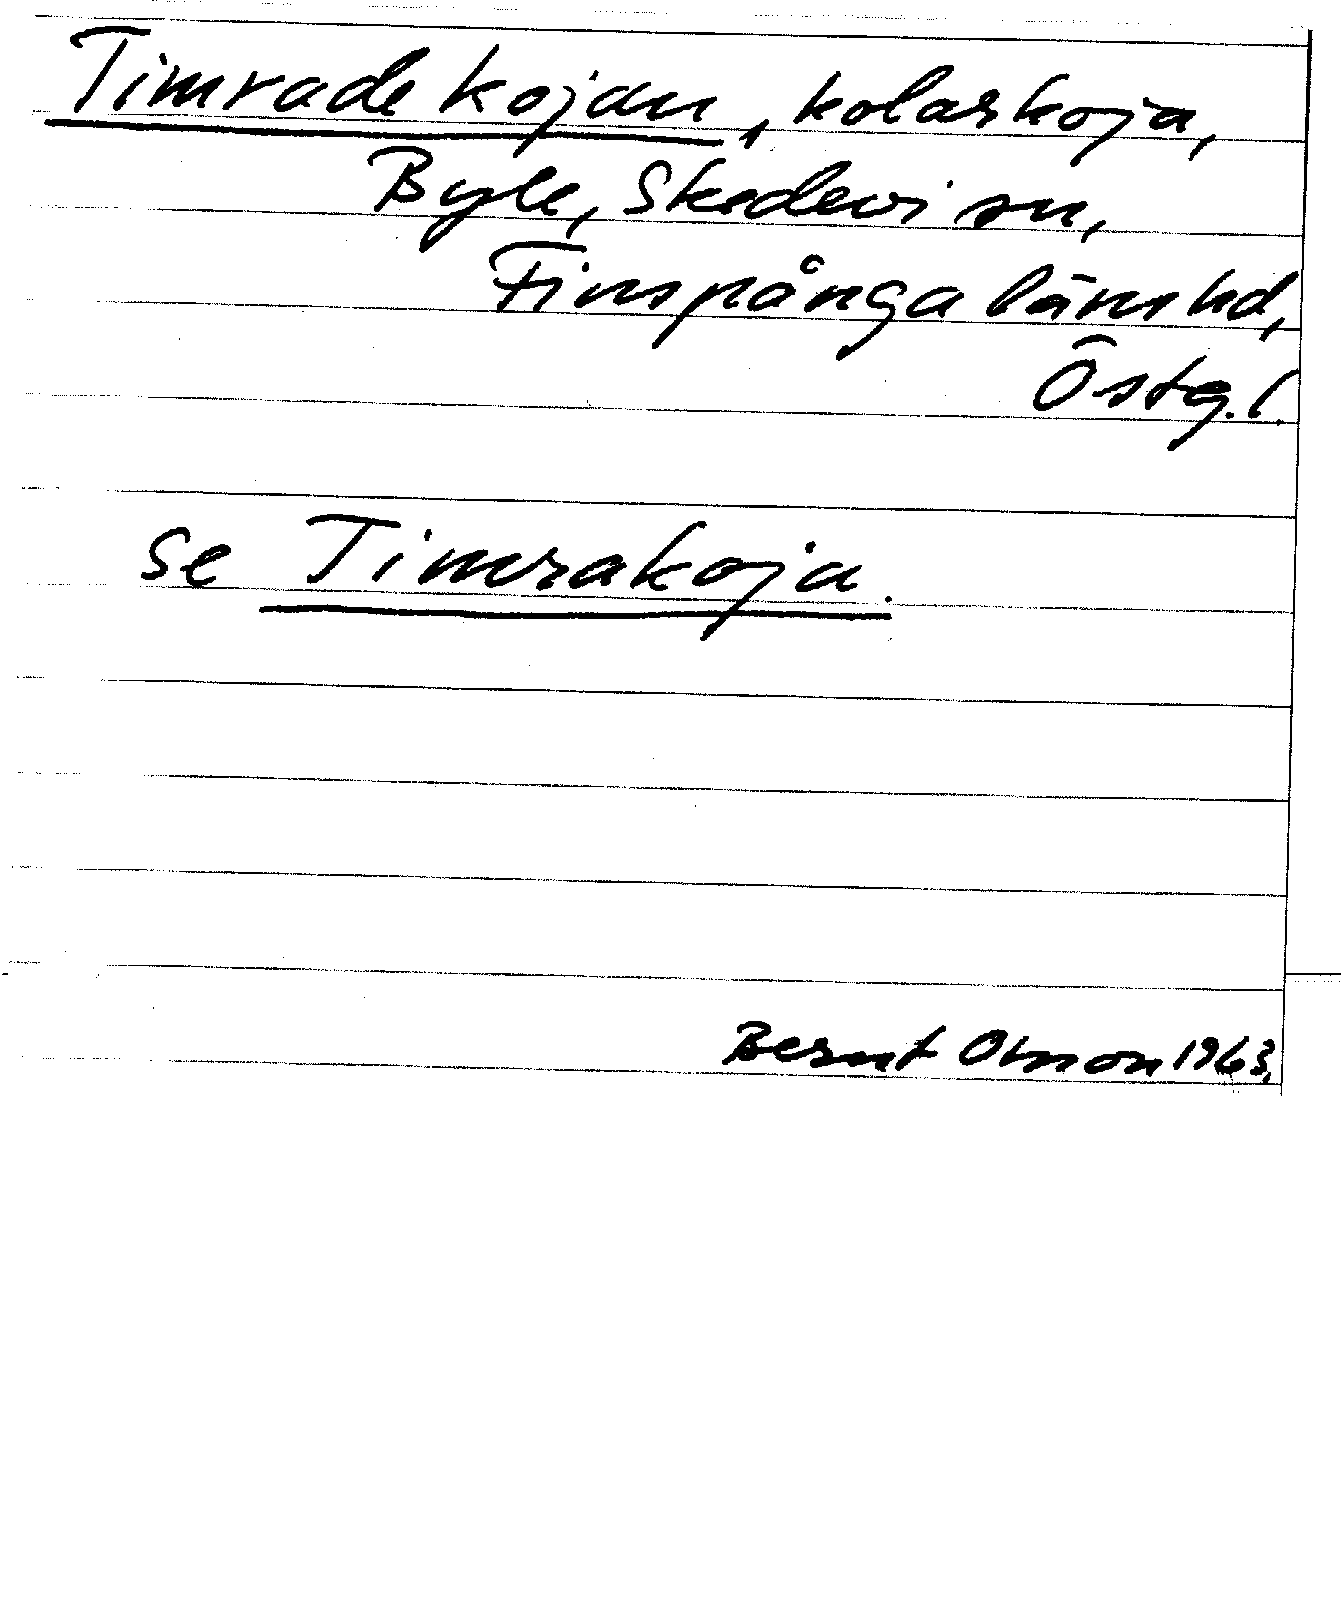 Timrade kojan, kolarkoja,
Byle, Skedevi sn,
Finspånga läns hd,
Östg.l.
se Timrakoja.
Bernt Olsson 1963.